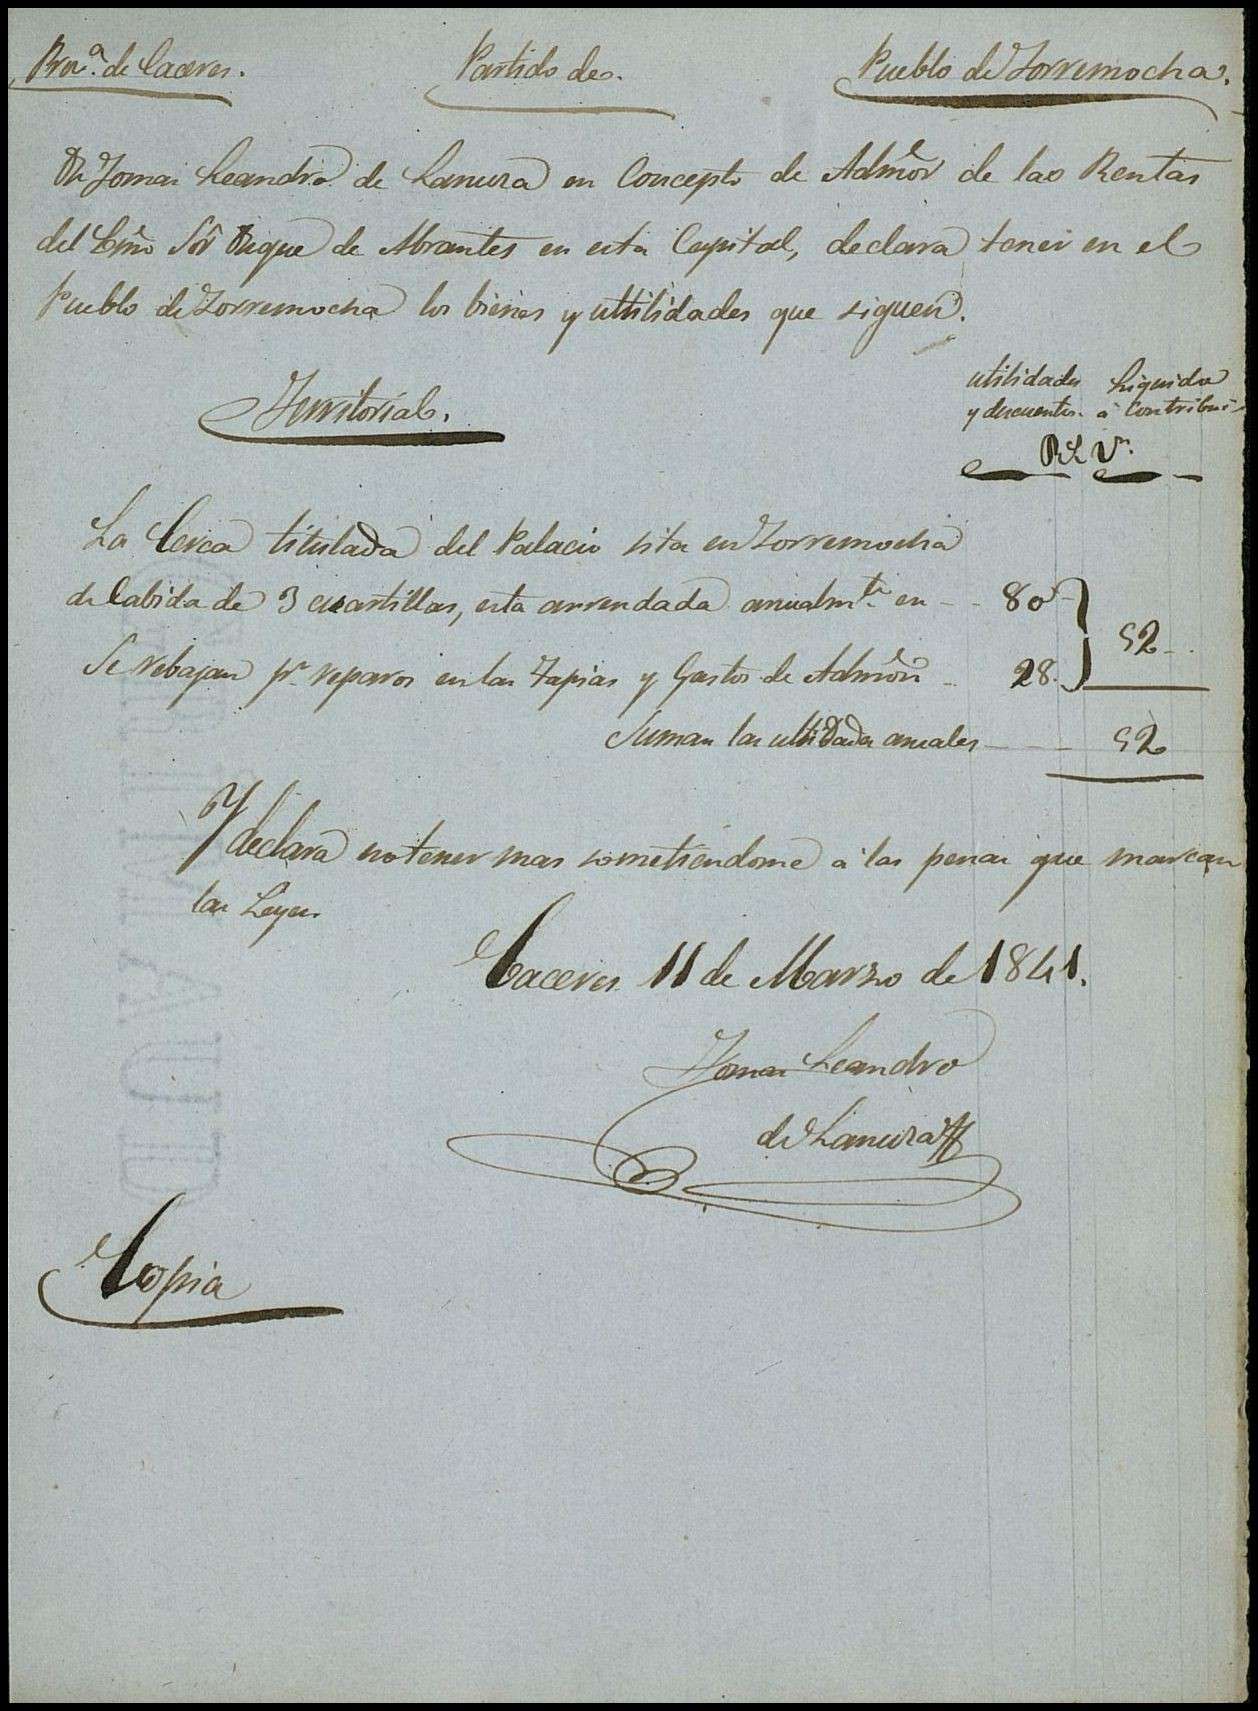 Prov.ª de Caceres. Partido de. Pueblo de Torremocha.
Dn Tomas Leandro de Lanuza en Concepto de Admõr de las Rentas
del Exmo Sõr Duque de Abrantes en esta Capital, declara tener en el
Pueblo de Torremocha los bienes y utilidades que siguen.
utilidades Liquido
y descuentos. a Contribui-
Territorial.
Rs Vn.
La Cerca titulada del Palacio sita en Torremocha
de Cabida de 3 cuartillas, esta arrendada anualmte en - - 80
52 -
Se rebajan pr reparos en las Tapias y Gastos de Admõn - 28.
Suman las utilidades anuales - 52
Y declara no tener mas sometiendome a las penas que marcan
las Leyes.
Caceres 11 de Marzo de 1841.
Tomas Leandro
de Lanuza
Copia